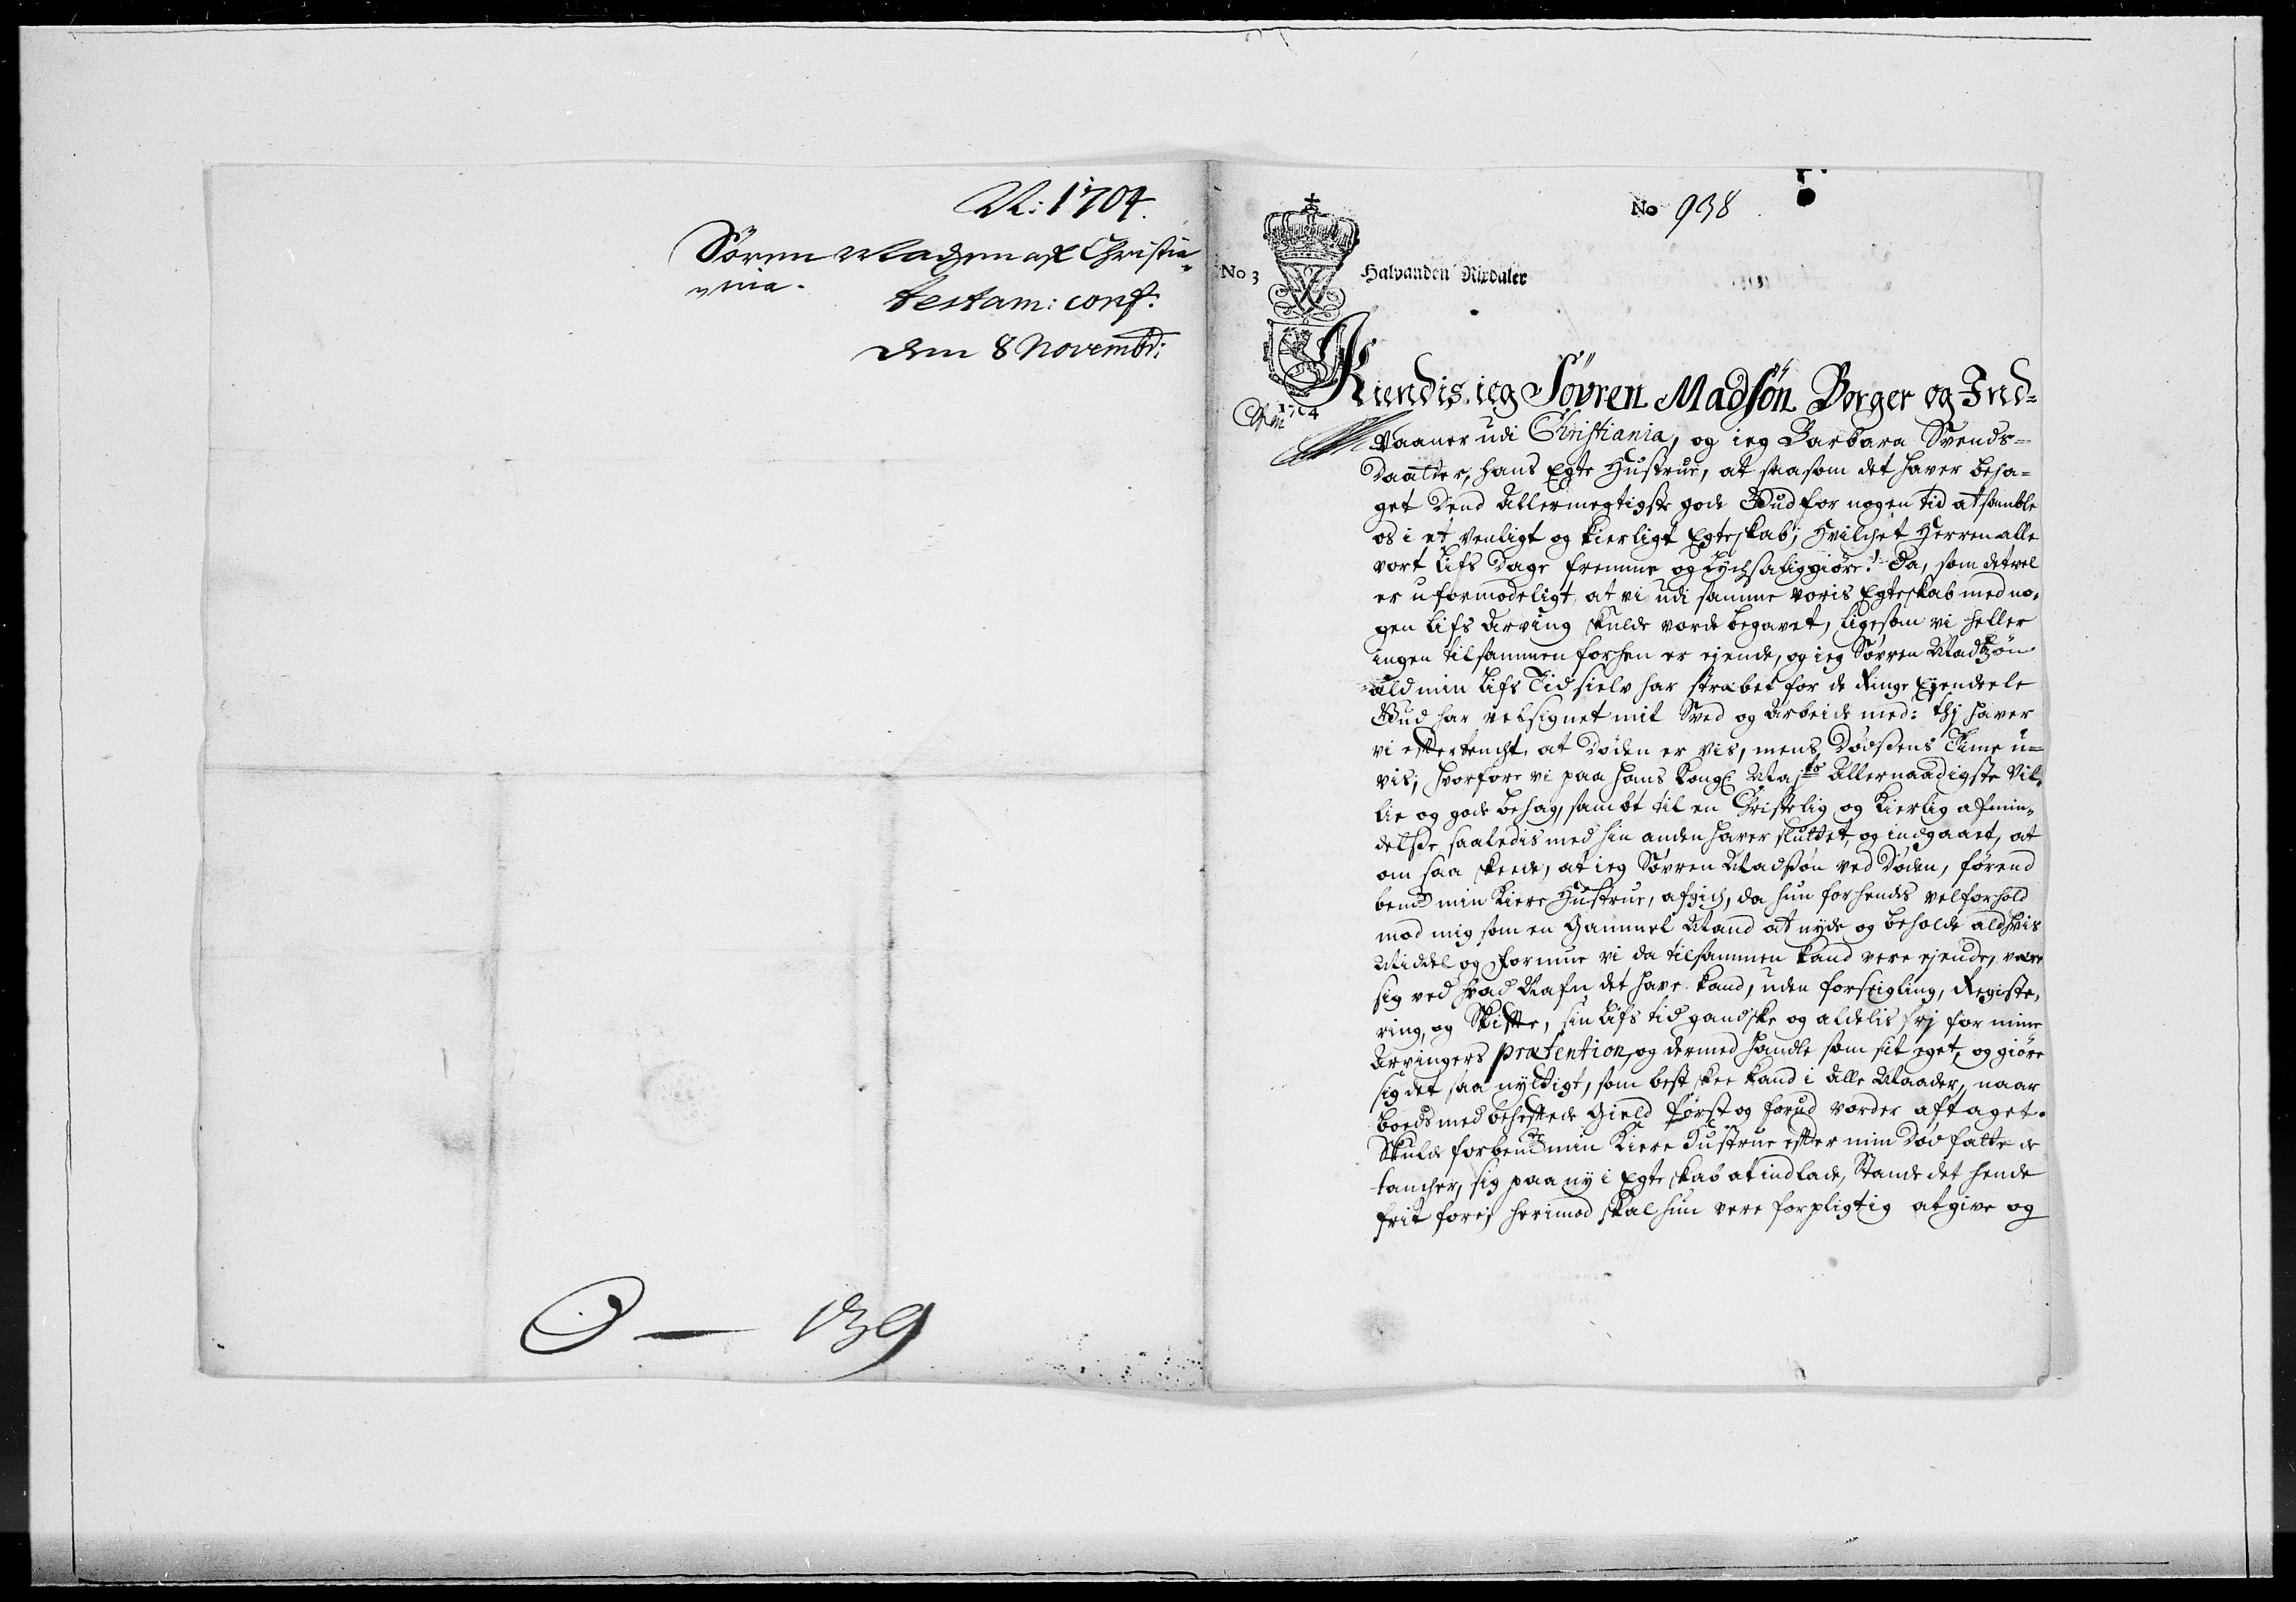 N: 1704.
Sören Madsen af Christia-
nia.
testam: conf:
den 8 Novembr:
O — 139
No 938
No 3
Halvanden Rixdaler
1704
Kiendis ieg Søvren Madsøn Borger og Ind=
vaaner udi Christiania, og ieg Barbara Svends=
Daatter, hans Egte Hustrue, at saasom det haver beha=
get Dend Allermegtigste gode Gud for nogen tid at samble
os i et venligt og kierligt Egteskab; Hvilchet Herren alle
vort Lifs Dage fremme og Lychsaliggiøre! Da, som det vel
er uformodeligt at vi udi samme voris Egteskab med no=
gen Lifs Arving skulde vorde begavet, ligesom vi heller
ingen tilsammen forhen er ejende, og ieg Søvren Madtzøn
ald min Lifs Tid sielv har strabet for de Ringe Ejendeele
Gud har velsignet mit Sved og Arbeide med: thj haver
vi eftertencht, at Døden er vis, mens Dødsens Time u=
vis; hvorfore vi paa Hans Kongl Majts Allernaadigste Vil=
lie og gode behag, sambt til en Christelig og Kierlig afmin=
delse saaledis med hin anden haver sluttet, og indgaaet, at
om saa skeede, at ieg Søvren Madsøn ved Døden, førend
bemte min Kiere Hustrue, afgich, da hun for hendes velforhold
mod mig som en Gammel Mand at nyde og beholde ald hvis
Middel og formue vi da tilsammen kand vere ejende, vere
sig ved hvad Nafn det have kand, uden forseigling, Registe=
ring, og Skifte, sin Lifs tid gandske og aldelis frj for mine
Arvingers prætention, og dermed handle som sit eget, og giøre
sig det saa nyttigt, som best skee kand i Alle Maader, naar
boeds med beheftede Gield først og forud vorder aftaget.
Skulde forbemte min Kiere Hustrue efter min Død fatte de
tancher, sig paa ny i Egteskab at indlade, Stande det hende
frit fore; herimod skal hun vere forpligtig at give og